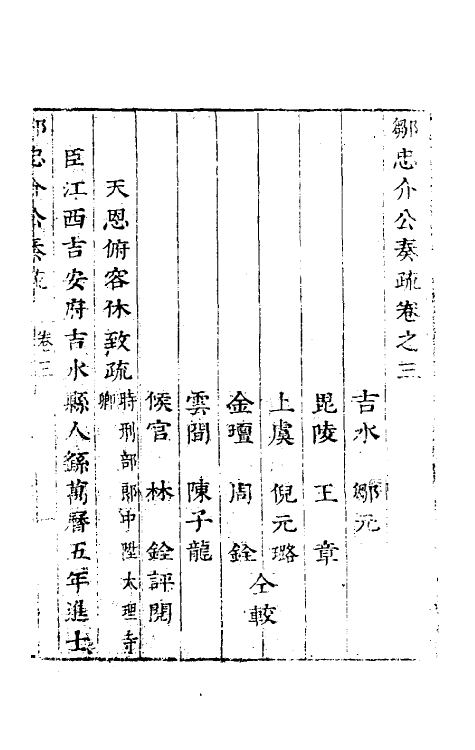 鄒忠介公奏疏卷之三
吉水　鄒元
毘陵　王　章
上虞　倪元璐
金壇　周　銓　仝較
雲間　陳子龍
候官　林　銓評閱
天恩俯容休致疏時刑部郎中陞大理寺卿
臣江西吉安府吉水縣人繇萬曆五年進士
鄒忠介公奏疏　卷三